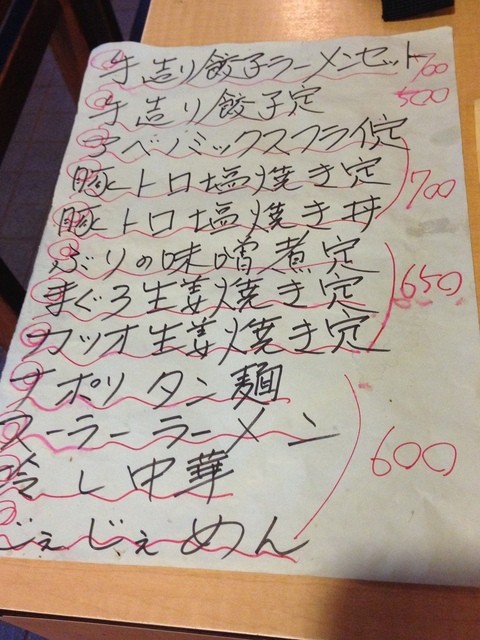 手造り餃子ラーメンセット 700
手造り餃子定 500
アベノミックスフライ定
豚トロ塩焼き定 700
豚トロ塩焼き丼
ぶりの味噌煮定
まぐろ生姜焼き定 650
カツオ生姜焼き定
ナポリタン麺
ヌーラーラーメン
冷し中華 600
じぇじぇめん